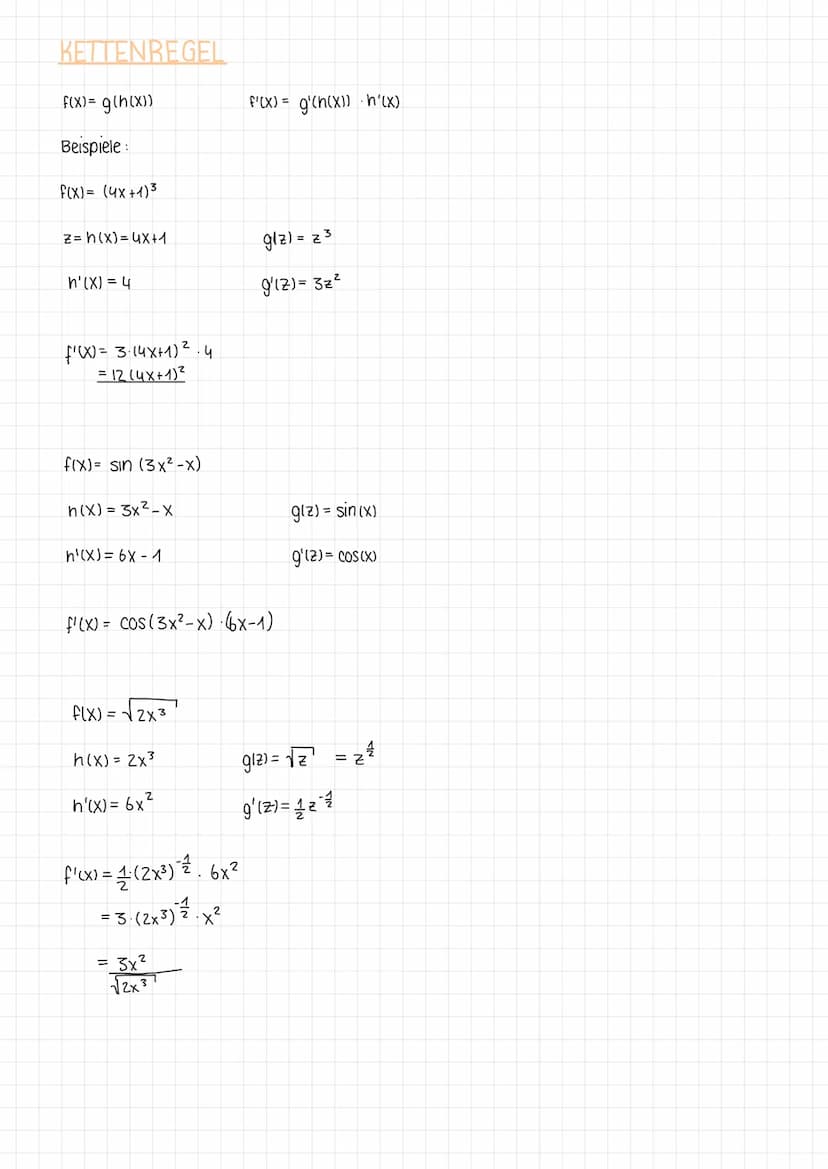 KETTENREGEL
f(x) = g(h(x)) f'(x) = g'(h(x)) · h'(x)
Beispiele:
f(x) = (4x+1)³
z = h(x) = 4x+1 g(z) = z³
h'(x) = 4 g'(z) = 3z²
f'(x) = 3·(4x+1)² · 4
= 12(4x+1)²
f(x) = sin (3x²-x)
h(x) = 3x²-x g(z) = sin(x)
h'(x) = 6x - 1 g'(z) = cos(x)
f'(x) = cos(3x²-x) · (6x-1)
f(x) = √2x³
h(x) = 2x³ g(z) = √z = z^½
h'(x) = 6x² g'(z) = ½ z^-½
f'(x) = ½·(2x³)^-½ · 6x²
= 3·(2x³)^-½ · x²
= 3x²
√2x³